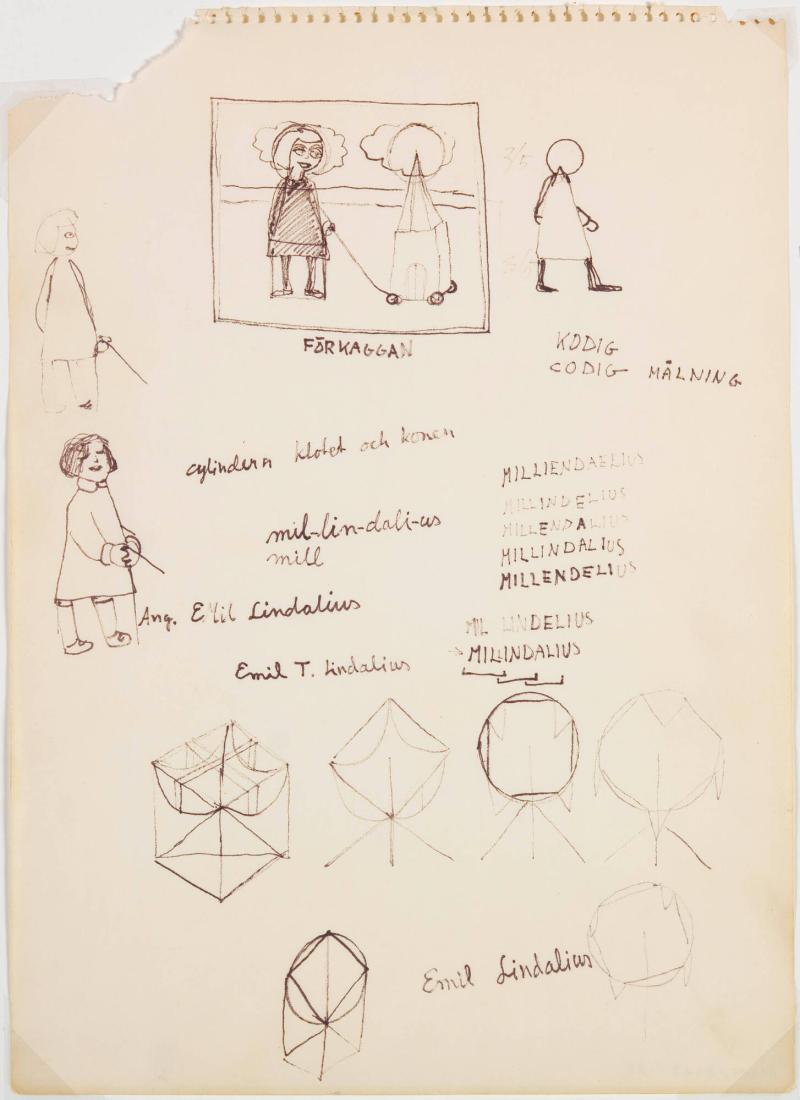 3/5
FÖRKAGGAN
KODIG
CODIG MÅLNING
cylindern klotet och konen
MILLIENDAELIUS
MILLINDELIUS
mil-lin-dali-us
MILLENDALIUS
mill
MILLINDALIUS
MILLENDELIUS
Ang. Emil Lindalius
MIL LINDELIUS
Emil T. Lindalius
MILLINDALIUS
Emil Lindalius